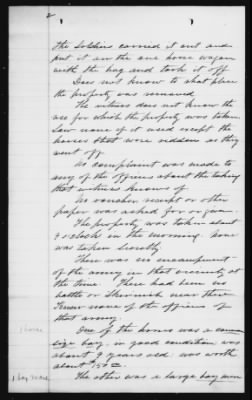 2
the soldiers carried it out and
put it in the one horse wagon
with the hay and took it off.
Does not know to what place
the property was removed
The witness does not know the
use for which the property was taken.
Saw none of it used except the
horses that were ridden as they
went off
No complaint was made to
any of the officers about the taking
that witness knows of
No voucher, receipt or other
paper was asked for or given
The property was taken about
9 o'clock in the morning. None
was taken secretly
There was no encampment
of the army in that vicinity at
the time. There had been no
battle or skirmish near there
Knew none of the officers of
that army.
1 horse
One of the horses was a common
size bay, in good condition was
about 9 years old. was worth
about $150.00
1 bay mare
The other was a large bay mare